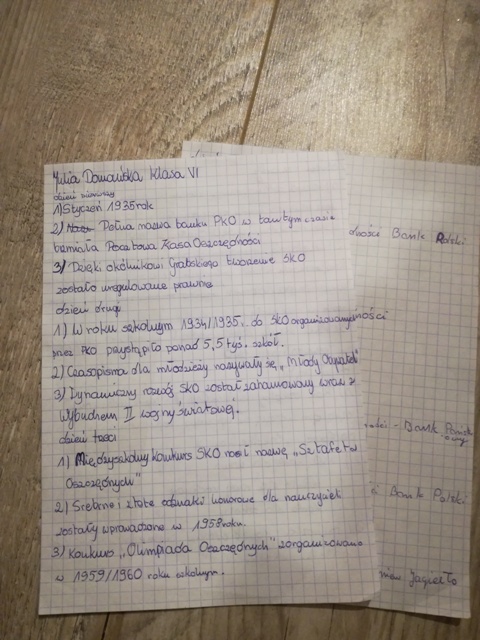 Julia Domańska klasa VI
dzień pierwszy
1) Styczeń 1935 rok
2) Pełna nazwa banku PKO w tamtym czasie
brzmiała Pocztowa Kasa Oszczędności
3) Dzięki okólnikowi Grabskiego tworzenie SKO
zostało uregulowane prawnie
dzień drugi
1) W roku szkolnym 1934/1935r. do SKO organizowanych
przez PKO przystąpiło ponad 5,5 tyś. szkół.
2) Czasopisma dla młodzieży nazywały się „Młody Obywatel"
3) Dynamiczny rozwój SKO został zahamowany wraz z
wybuchem II wojny światowej.
dzień trzeci
1) Międzyszkolny konkurs SKO nosił nazwę „Sztafeta
Oszczędnych"
2) Srebrne i złote odznaki honorowe dla nauczycieli
zostały wprowadzone w 1958 roku.
3) Konkurs „Olimpiada Oszczędnych" zorganizowano
w 1959/1960 roku szkolnym.
Bank Polski
ności
Bank
owy
Bank Polski
Jagiełło